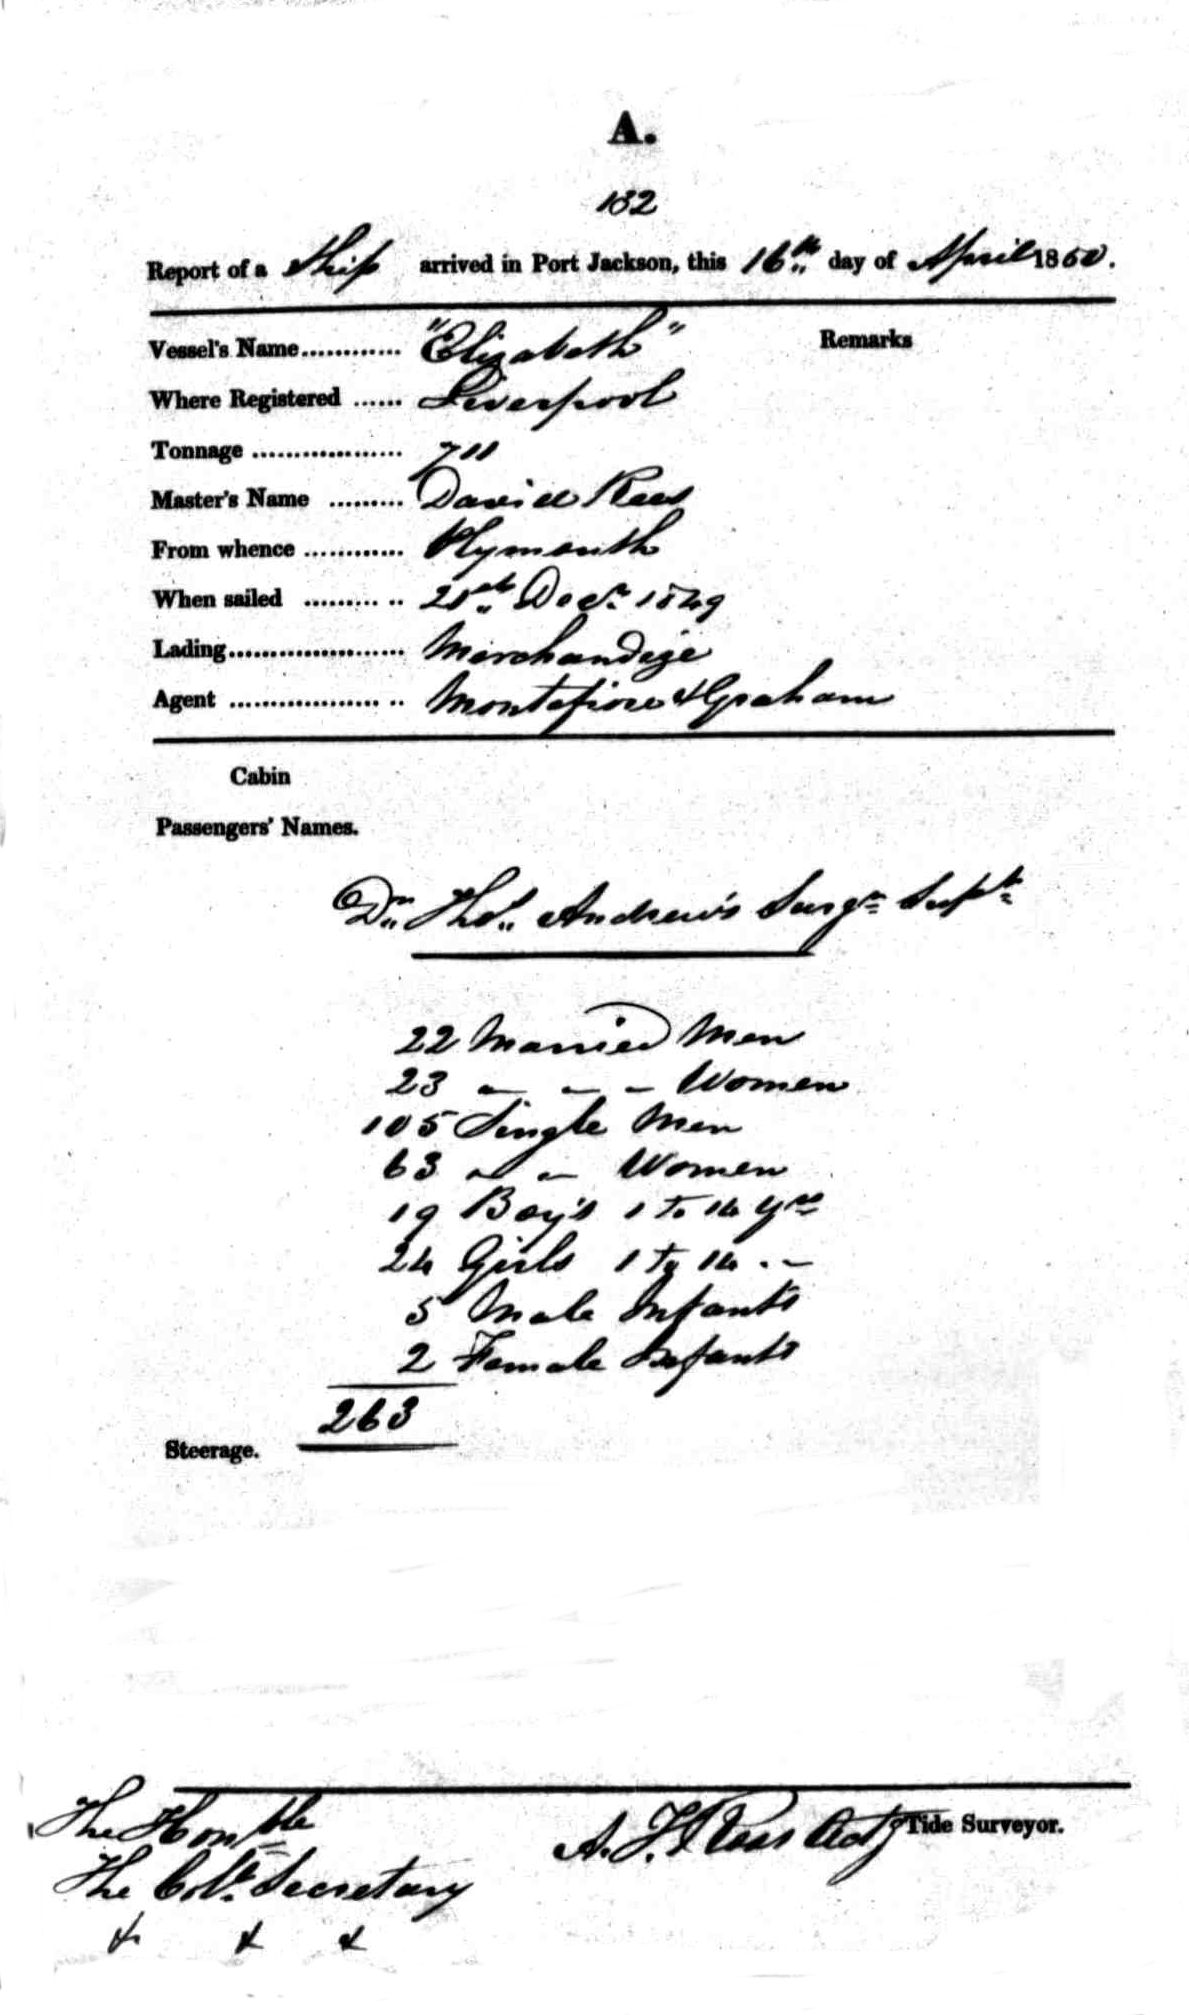 A.
132
Report of a Ship arrived in Port Jackson, this 16th day of April 1850.
Vessel's Name............ "Elizabeth" Remarks
Where Registered ...... Liverpool
Tonnage .................. 711
Master's Name ......... David Rees
From whence ............ Plymouth
When sailed ......... .. 21st Decr 1849
Lading..................... Merchandize
Agent .................. .. Montefiore & Graham
Cabin
Passengers' Names.
Dr Thos Andrew's Surgn Supt
22 Married Men
23 " " " Women
105 Single Men
63 " " Women
19 Boy's 1 to 14 yrs
24 Girls 1 to 14 " "
5 Male Infants
2 Female Infants
263
Steerage.
The Honble
The Coll Secretary
& & &
A. J. Ross Actg Tide Surveyor.